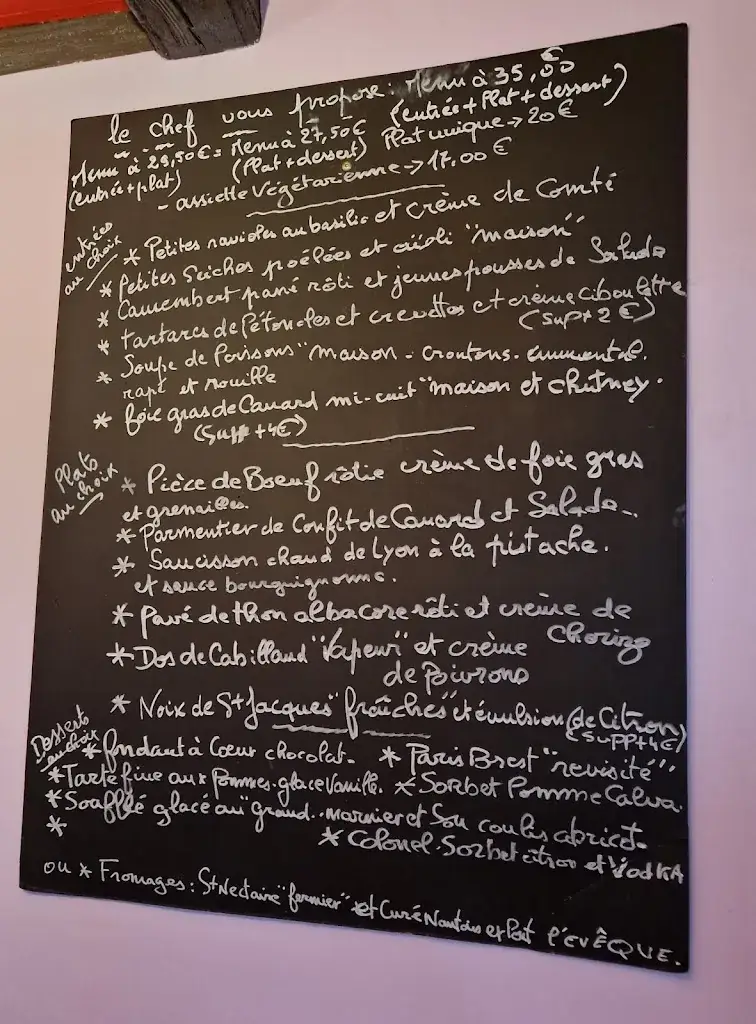 le chef vous propose: Menu à 35,00€
Menu à 28,50€ = Menu à 27,50€ (entrée + Plat + dessert)
(entrée + plat) (Plat + dessert) Plat unique → 20€
- assiette Végétarienne → 17,00€
entrées au choix
* Petites ravioles au basilic et crème de Comté
* Petites Seiches poêlées et aïoli "maison"
* Camembert pané rôti et jeunes pousses de Salade
* tartares de Pétoncles et crevettes et crème Ciboulette
(Sup + 2€)
* Soupe de Poissons "maison - croutons. emmental.
rapé et rouille
* foie gras de Canard mi-cuit "maison et chutney.
(Supp +4€)
Plats au choix
* Pièce de Boeuf rôtie crème de foie gras
et grenailles.
* Parmentier de Confit de Canard et Salade..
* Saucisson chaud de Lyon à la pistache.
et sauce bourguignonne.
* Pavé de thon albacore rôti et crème de
Chorizo
* Dos de Cabillaud "Vapeur" et crème
de Poivrons
* Noix de St Jacques "fraîches" et émulsion (de Citron
(SUPP+4€)
Desserts au choix
* fondant à Coeur chocolat. * Paris Brest "revisité"
* Tarte fine aux Pommes. glace Vanille. * Sorbet Pomme Calva.
* Soufflé glacé au "Grand.. marnier et Son coulis abricot.
* * Colonel. Sorbet citron et Vodka
ou * Fromages : St Nectaire "fermier" et Curé Nantais et Pont l'évÊQUE.